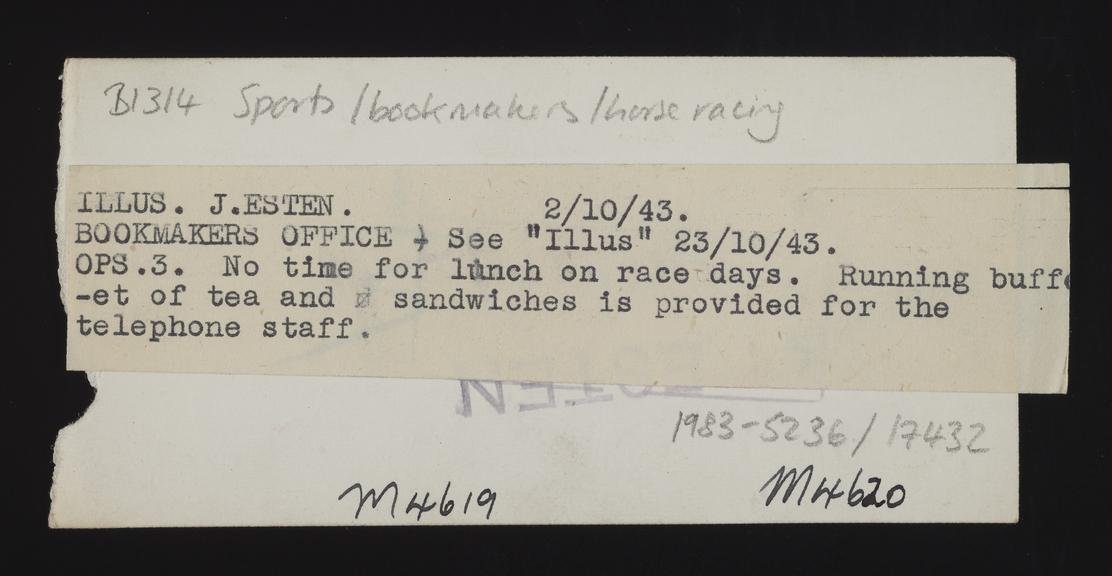 B1314 Sports/bookmakers/horse racing
ILLUS. J.ESTEN. 2/10/43.
BOOKMAKERS OFFICE + See "Illus" 23/10/43.
OPS.3. No time for lunch on race days. Running buffe
-et of tea and sandwiches is provided for the
telephone staff.
ESTEN
1983-5236/17432
M4619 M4620